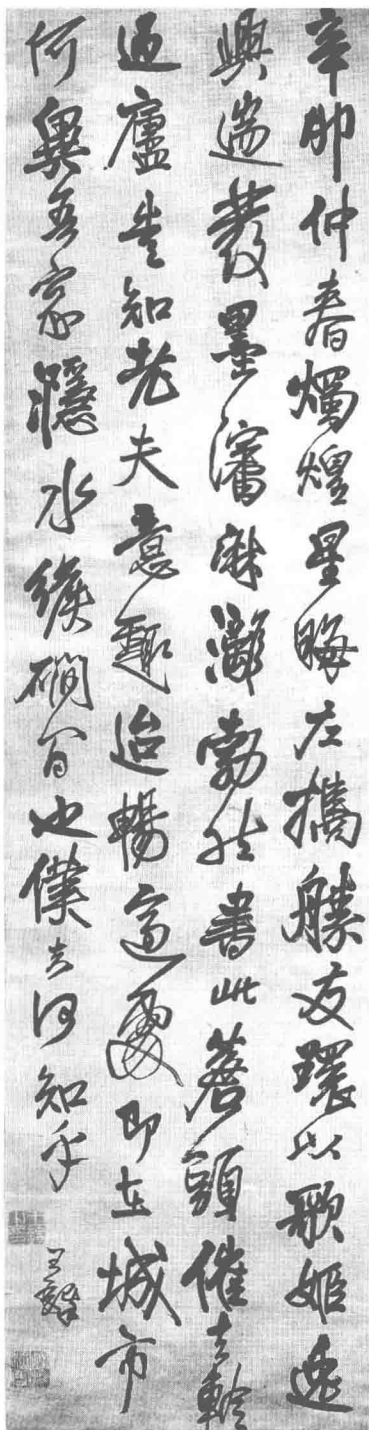 辛卯仲春燭煌星晦左攜勝友環以歌姬逸
興遄發墨瀋淋灕勃然書此蒼頭催去
過廬豈知老夫意趣迨暢適處即在城市
何異吾家隱水緱磵間也僕何知乎
王鐸